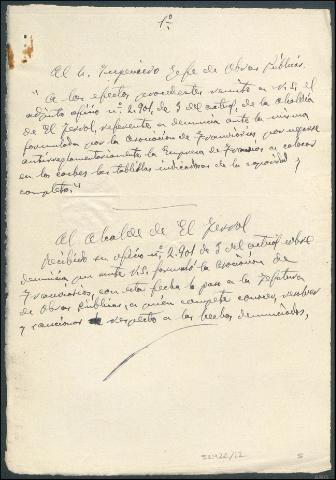 1º
Al Sr. Ingeniero Jefe de Obras Públicas.
"A los efectos procedentes remito a V.S. el
adjunto oficio nº. 2.901, de 3 del actual, de la alcaldía
de El Ferrol, referente a denuncia ante la misma
formulada por la Asociación de Tranviarios por negarse
antirreglamentariamente la Empresa de Tranvías a colocar
en los coches las tablillas indicadoras de la capacidad y
completo."
Al Alcalde de El Ferrol
Recibido su oficio nº. 2.901 de 3 del actual sobre
denuncia que ante V.S. formuló la Asociación de
Tranviarios, con esta fecha lo paso a la Jefatura
de Obras Públicas, a quien compete conocer, resolver
y sancionar respecto a los hechos denunciados,
52422/12
5